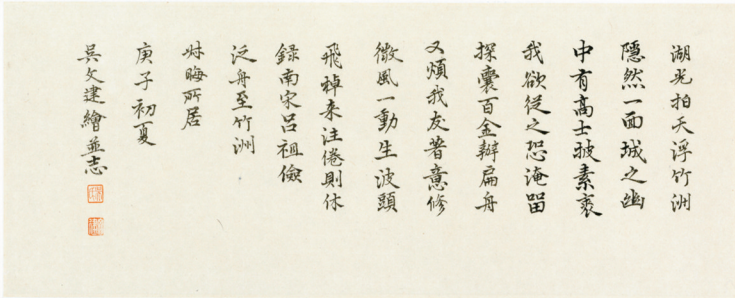 湖光拍天浮竹洲
隱然一面城之幽
中有高士披素裘
我欲從之恐淹留
探囊百金辦扁舟
又煩我友著意修
微風一動生波頭
飛棹来往倦則休
錄南宋呂祖儉
泛舟至竹洲
叔晦所居
庚子初夏
吳文建繪並志